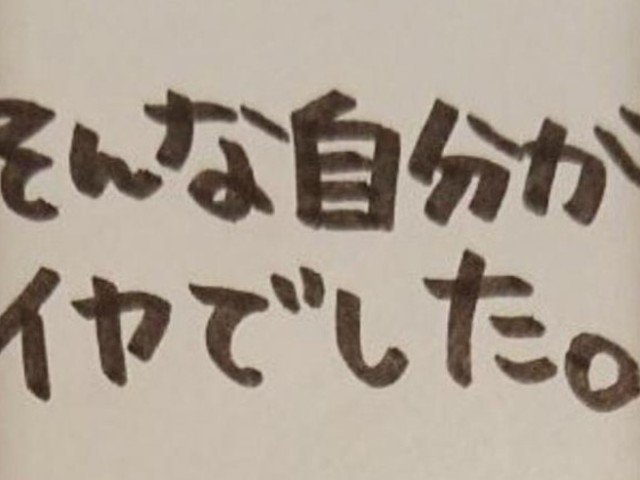 そんな自分が
イヤでした。